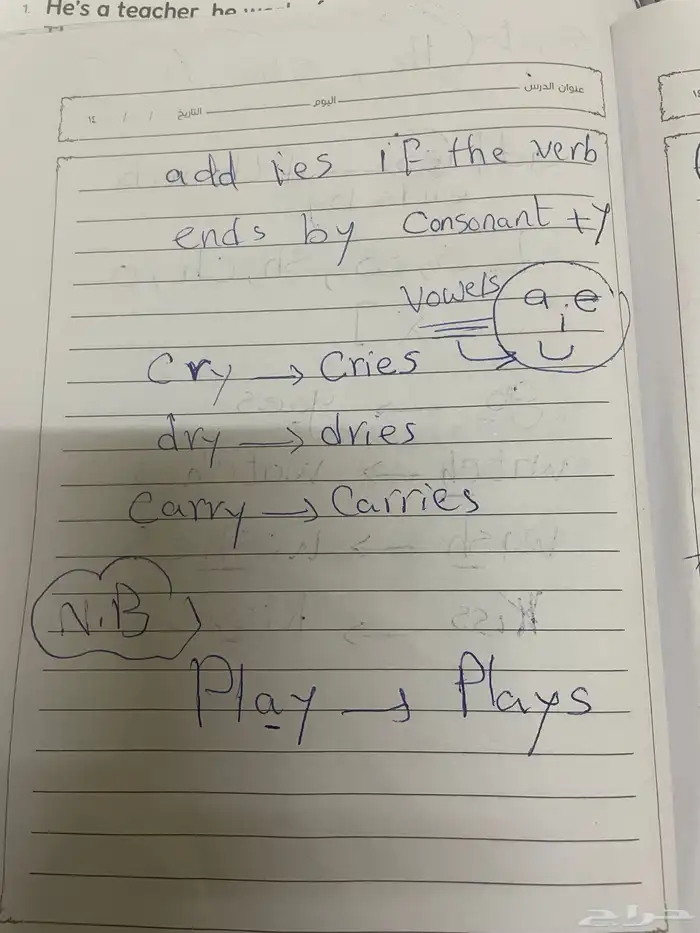 1. He's a teacher he
عنوان الدرس اليوم التاريخ / / ١٤
add ies if the verb
ends by Consonant +y
Vowels a,e
i
u
Cry → Cries
dry → dries
Carry → Carries
N.B
Play → Plays
حراج